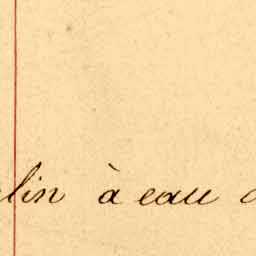 lin à eau